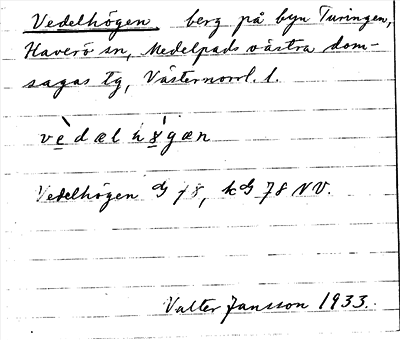 Vedelhögen berg på byn Turingen,
Haverö sn, Medelpads västra dom-
sagas tg, Västernorrl. l.
vèdæl hø̀gæn
Vedelhögen G 78, kG 78 NV.
Valter Jansson 1933.